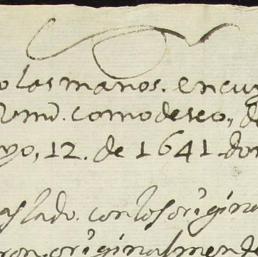 o las manos. en cuy
Rmd. como deseo, de
yo, 12. de 1641. don
aslado. con los origina
ron. originalmente